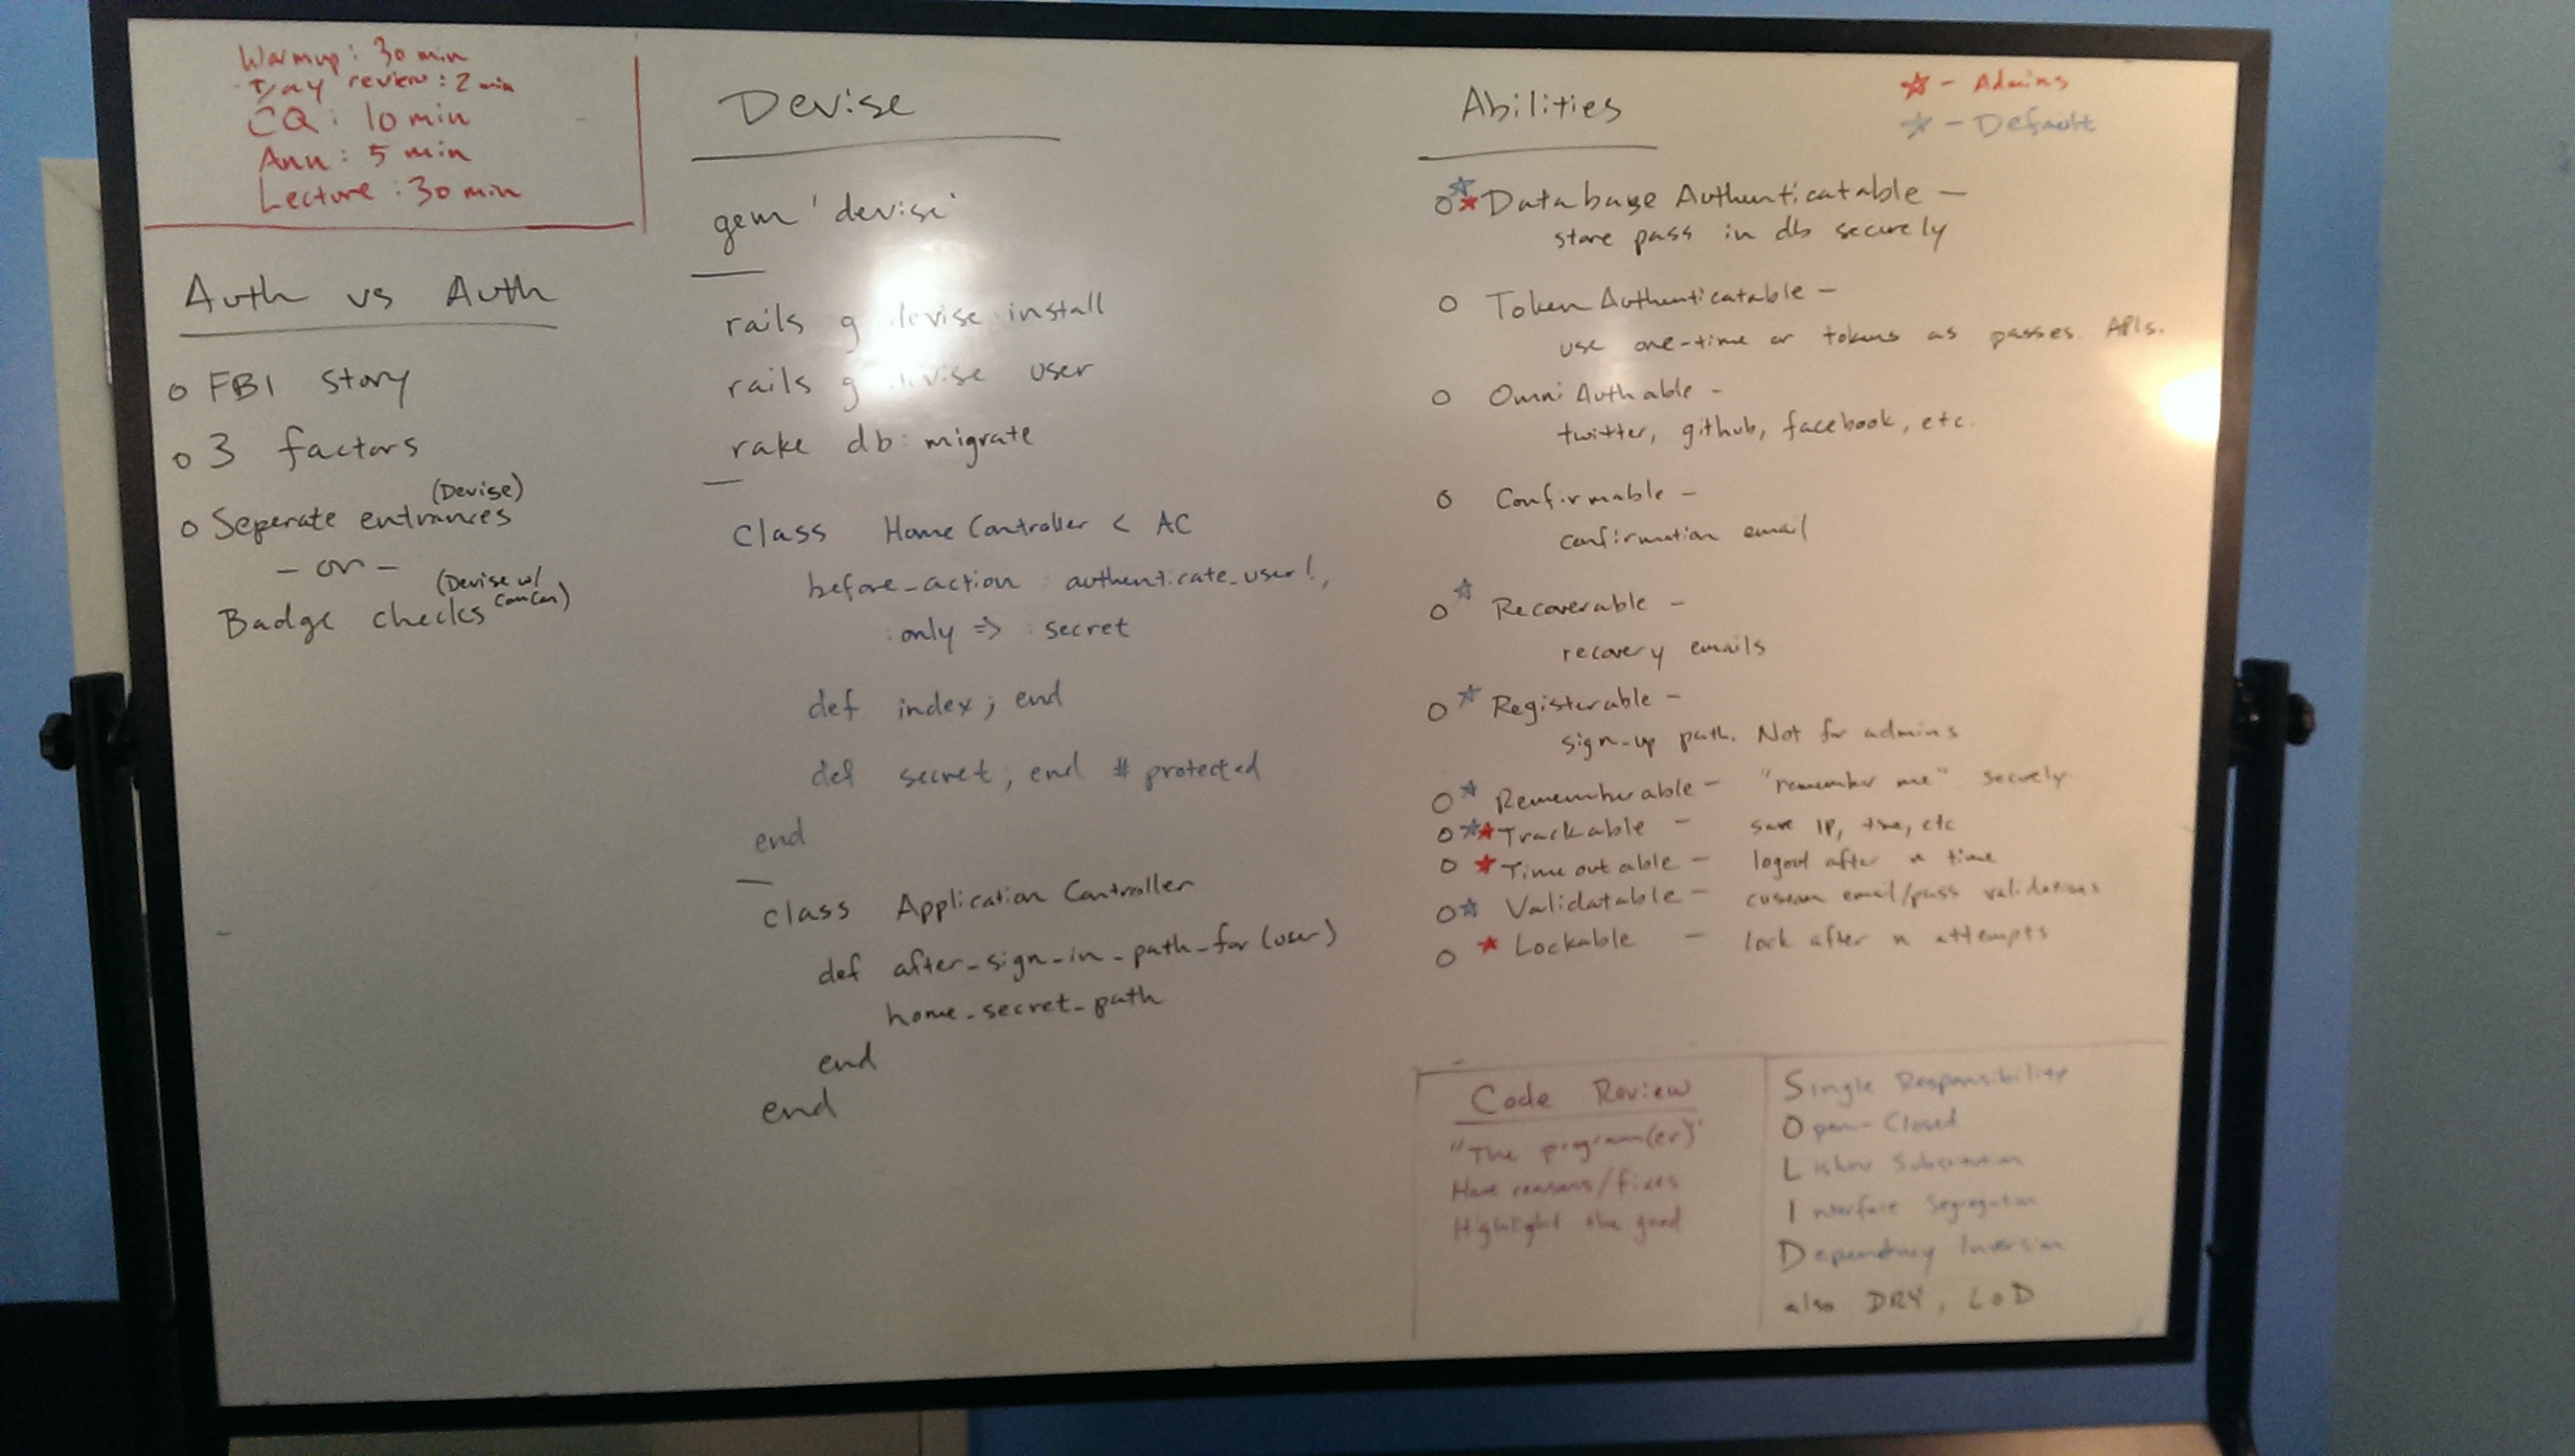 Warmup: 30 min
review: 2 min
CQ: 10 min
Ann: 5 min
Lecture: 30 min
Auth vs Auth
o FBI story
o 3 factors
(Devise)
o Seperate entrances
- or -
(Devise w/
CanCan)
Badge checks
Devise
gem 'devise'
rails g devise:install
rails g devise user
rake db:migrate
class HomeController < AC
before_action :authenticate_user!,
:only => :secret
def index; end
def secret; end # protected
end
class ApplicationController
def after_sign_in_path_for(user)
home_secret_path
end
end
Abilities
☆ - Admins
☆ - Default
o ☆★ Database Authenticatable -
store pass in db securely
o Token Authenticatable -
use one-time or tokens as passes. APIs.
o OmniAuthable -
twitter, github, facebook, etc.
o Confirmable -
confirmation email
o ☆ Recoverable -
recovery emails
o ☆ Registerable -
sign-up path. Not for admins
o ☆ Rememberable - "remember me" securely
o ☆★ Trackable - save IP, time, etc
o ★ Timeoutable - logout after n time
o ☆ Validatable - custom email/pass validations
o ★ Lockable - lock after n attempts
Code Review
"The program(er)"
Have reasons/fixes
Highlight the good
Single Responsibility
Open-Closed
Liskov Substitution
Interface Segregation
Dependency Inversion
also DRY, LoD